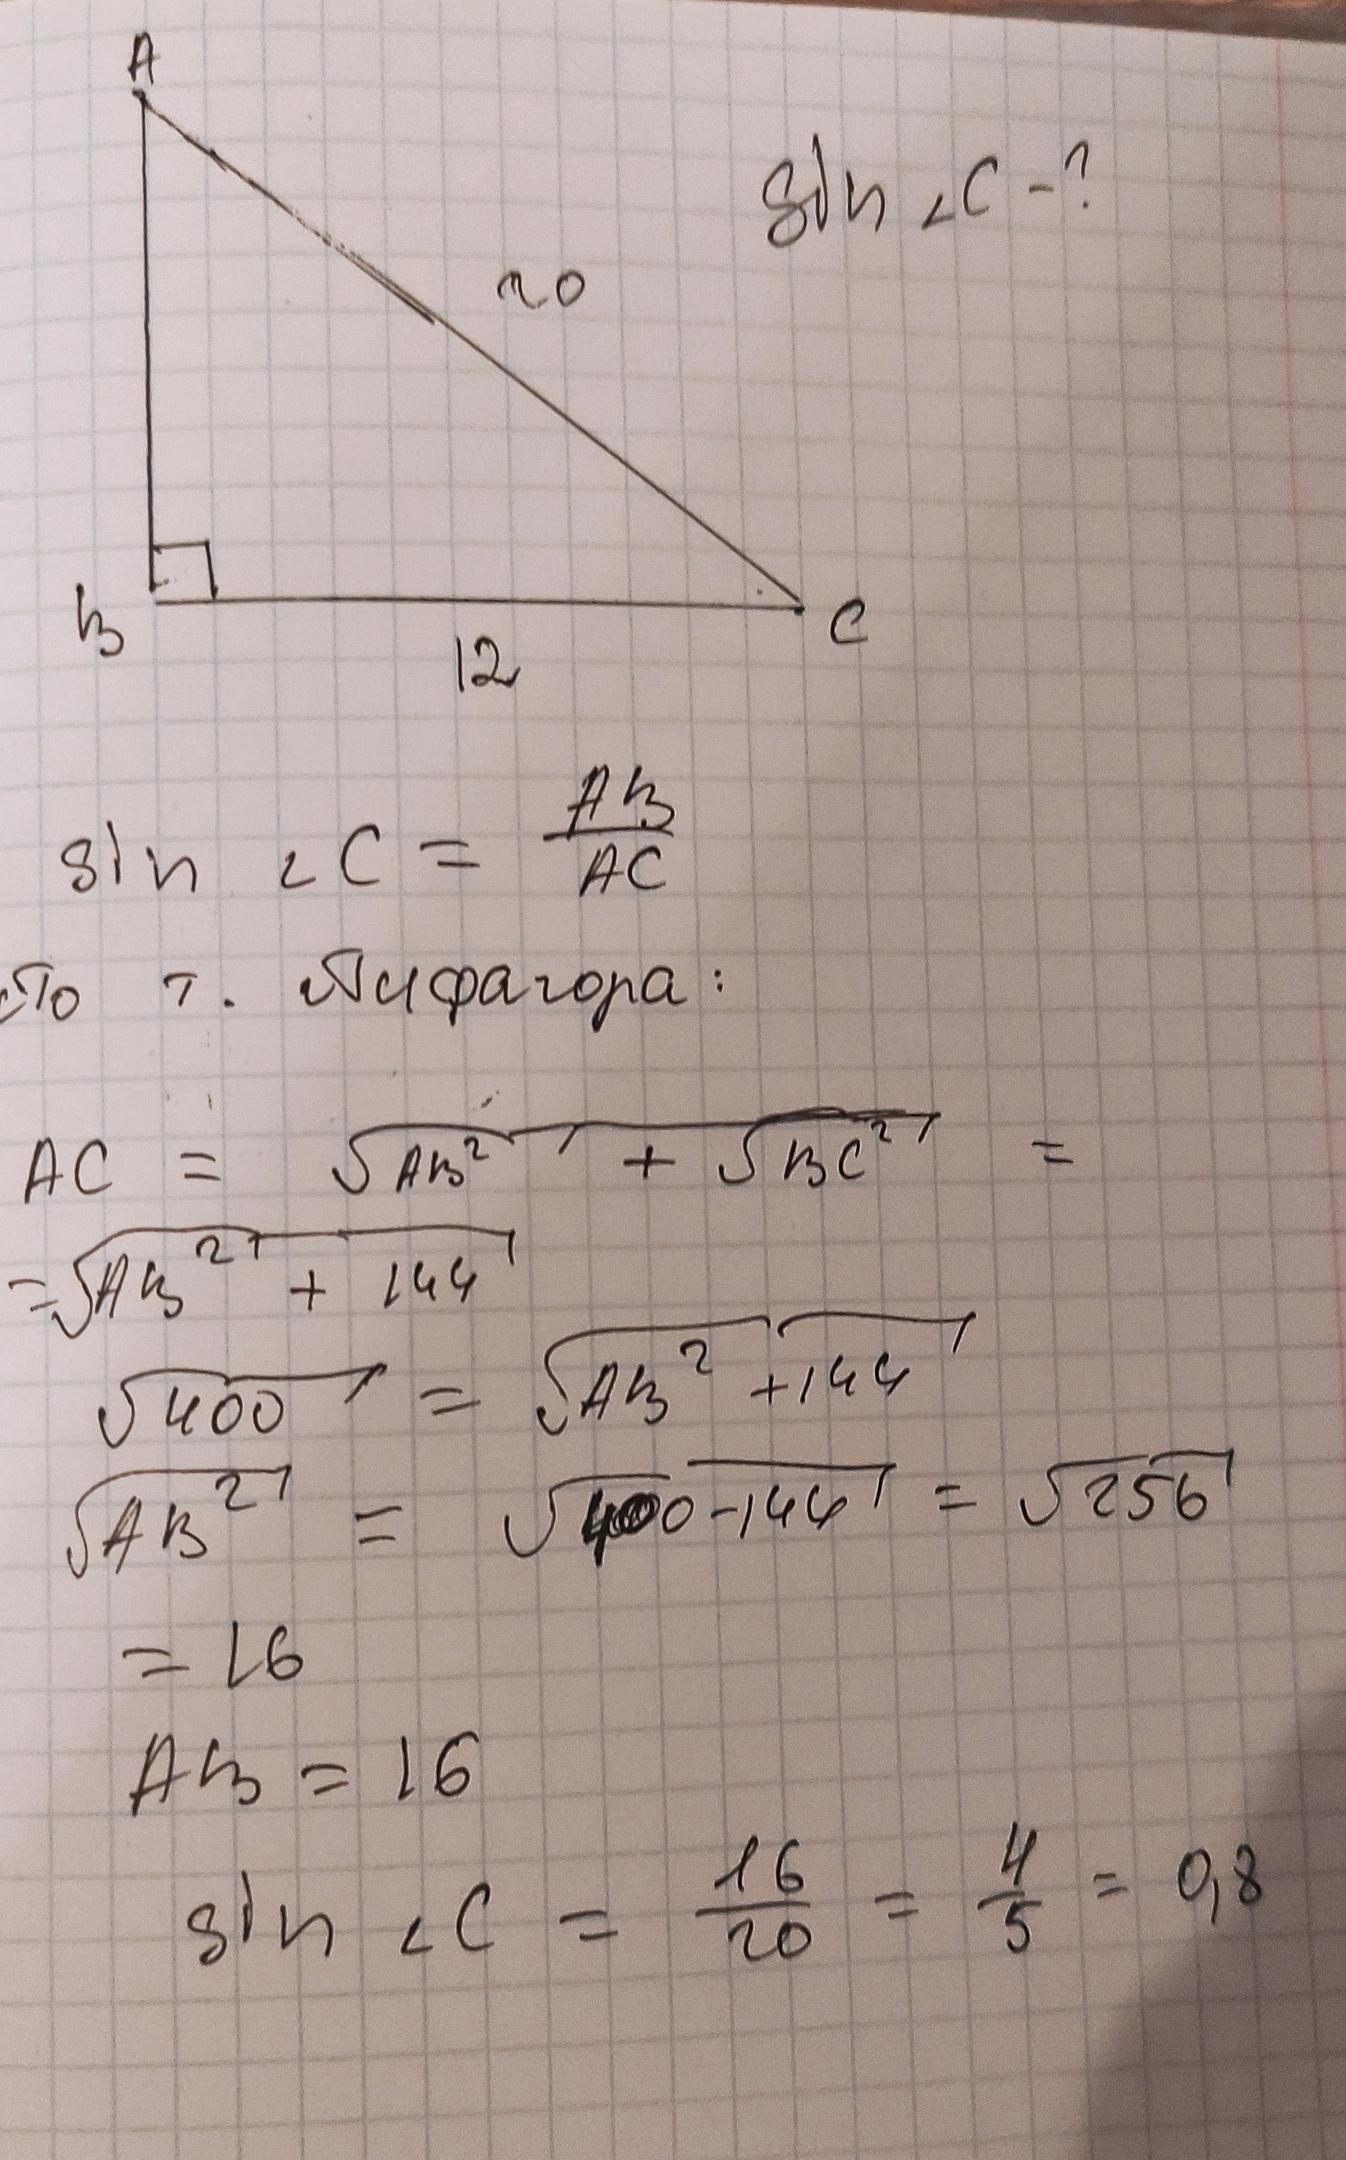 A
sin ∠C - ?
20
B
C
12
sin ∠C = AB/AC
По т. Пифагора:
AC = √AB² + √BC² =
= √AB² + 144
√400 = √AB² + 144
√AB² = √400-144 = √256
= 16
AB = 16
sin ∠C = 16/20 = 4/5 = 0,8